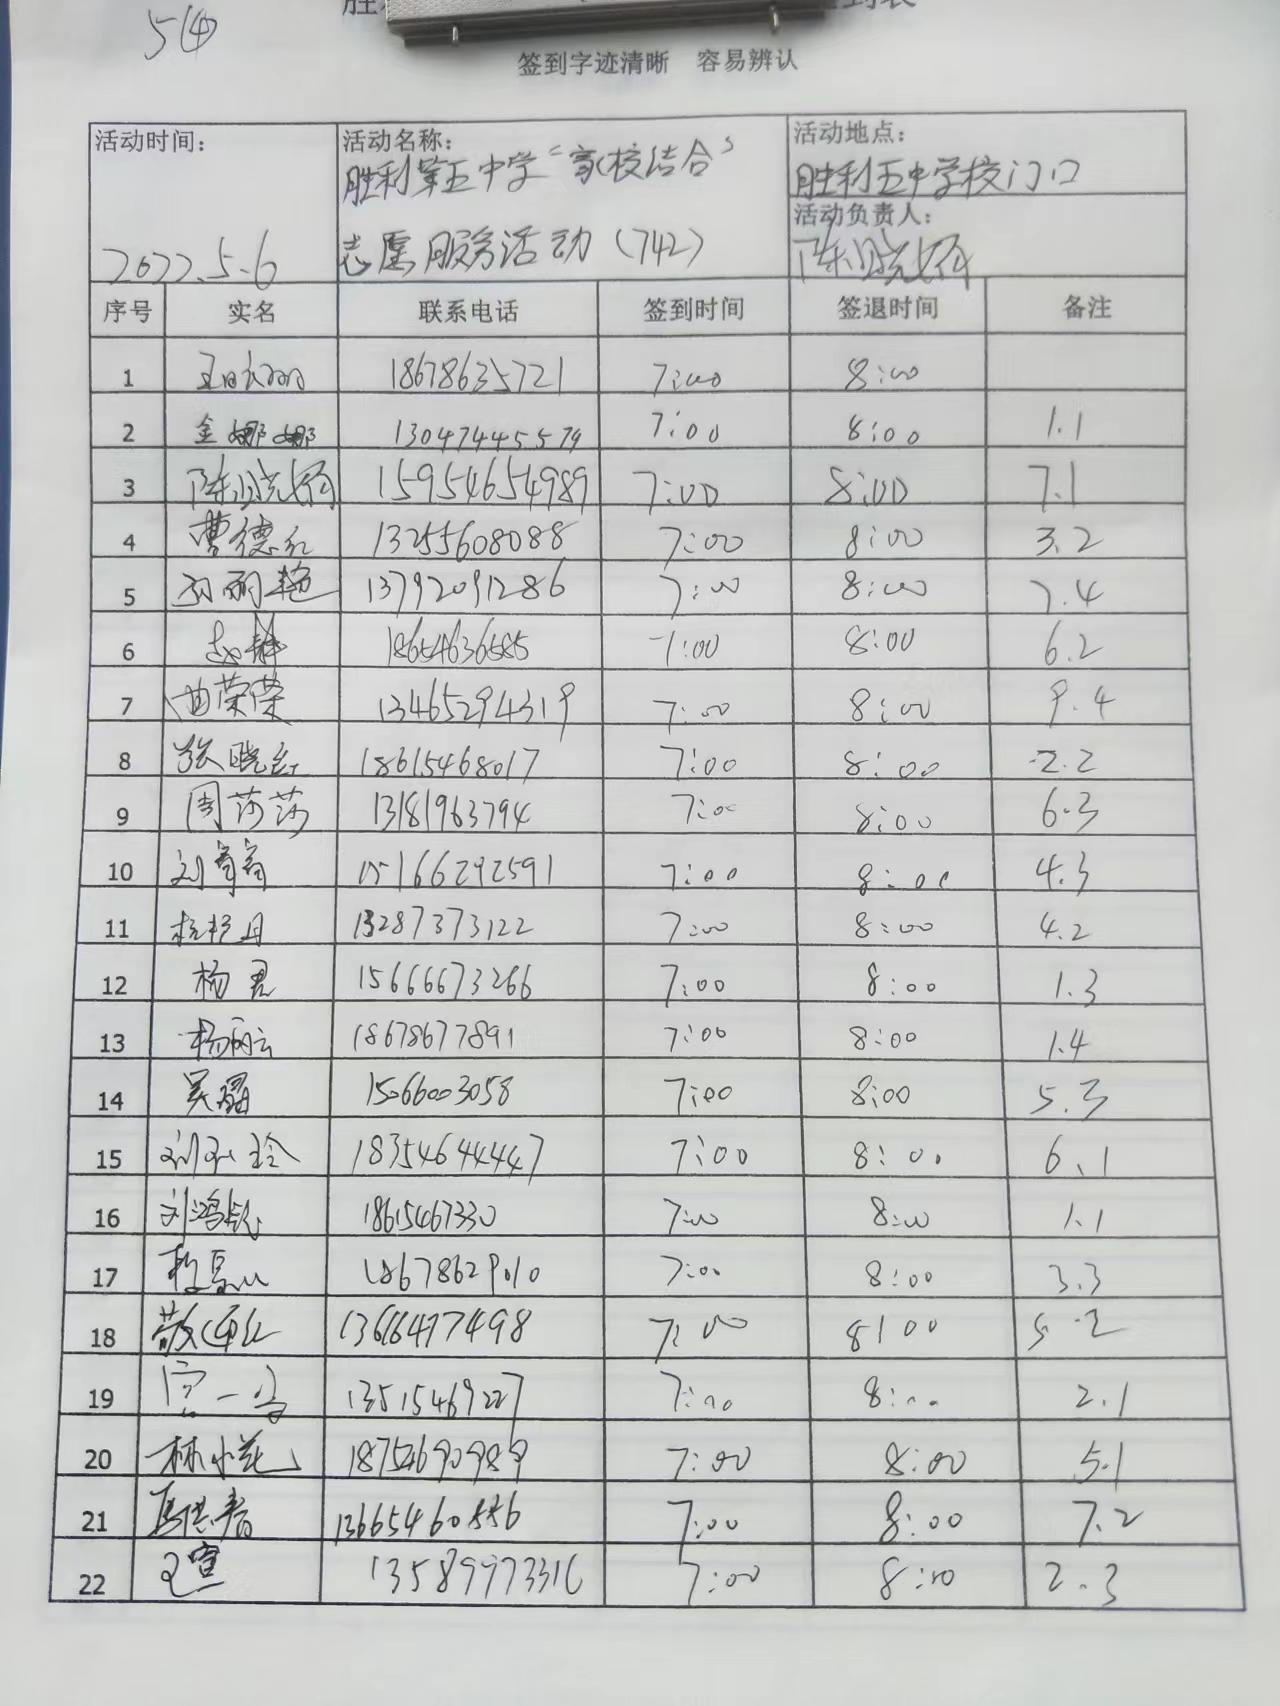 5(4)
签到字迹清晰 容易辨认
活动时间: 2022.5.6
活动名称: 胜利第五中学“家校结合”
志愿服务活动(742)
活动地点:
胜利五中学校门口
活动负责人:
序号 实名 联系电话 签到时间 签退时间 备注
1 18678635721 7:00 8:00
2 金娜娜 13047445579 7:00 8:00 1.1
3 15954654989 7:00 8:00 7.1
4 曹德红 13255608088 7:00 8:00 3.2
5 孙丽艳 13792091286 7:00 8:00 7.4
6 赵静 18654636585 7:00 8:00 6.2
7 曲荣荣 13465294319 7:00 8:00 9.4
8 张晓红 18615468017 7:00 8:00 2.2
9 周莎莎 13181963794 7:00 8:00 6.3
10 15166292591 7:00 8:00 4.3
11 13287373122 7:00 8:00 4.2
12 杨君 15666673266 7:00 8:00 1.3
13 杨丽云 18678677891 7:00 8:00 1.4
14 15066003058 7:00 8:00 5.3
15 18354644447 7:00 8:00 6.1
16 18615467330 7:00 8:00 1.1
17 18678629010 7:00 8:00 3.3
18 13616477498 7:00 8:00 5.2
19 宫一鸣 13515469227 7:00 8:00 2.1
20 林小花 18754690989 7:00 8:00 5.1
21 13665460556 7:00 8:00 7.2
22 王宣 13589973316 7:00 8:00 2.3